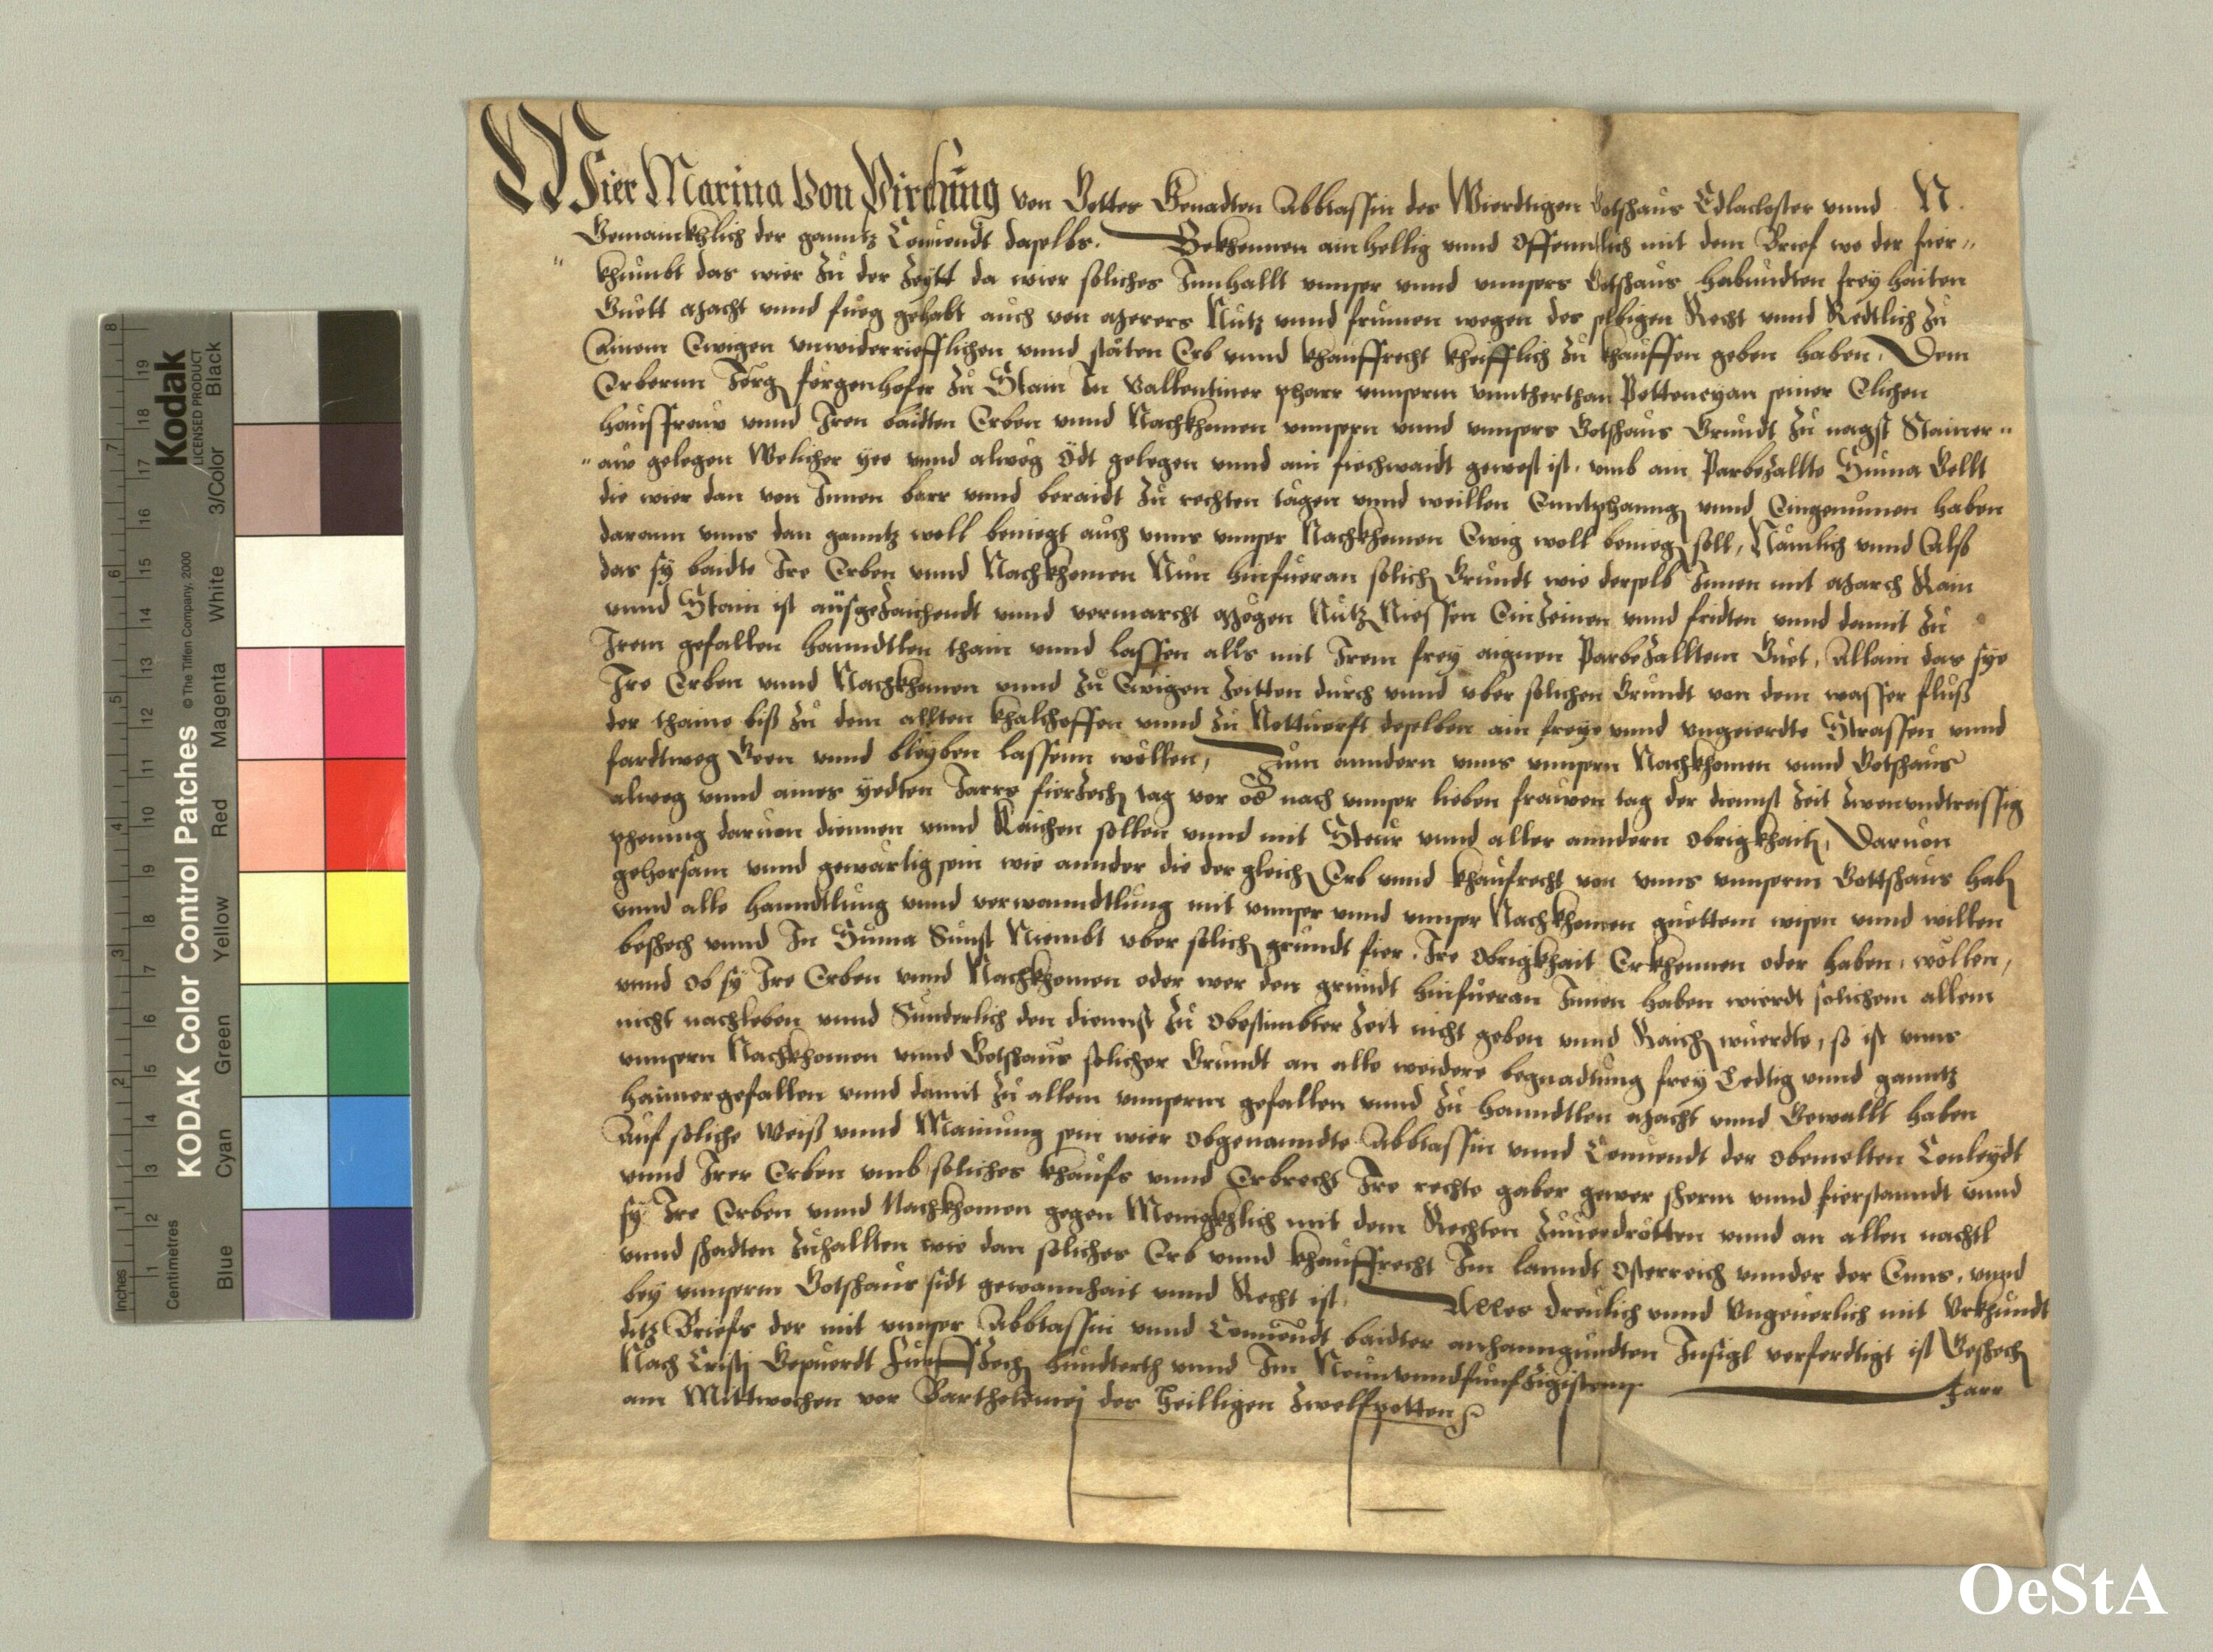 Wier Marina Von Pirching von Gottes Genadten Abbtassin des Wierdtigen Gotshaus Edlacloster vnnd N.
Gemainkhlich der ganntz Conuendt daselbs. Bekhennen ainhellig vnnd offenntlich mit dem Brief wo der fier„
„ khumbt das wier zu der Zeytt da wier soliches Innhallt vnnser vnnd vnnsers Gotshaus habundten freyhaiten
Guett macht vnnd fueg gehabt auch von merers Nutz vnnd frumen wegen des selbigen Recht vnnd Redtlich zu
Ainem Ewigen vnwiderriefflichen vnnd stäten Erb vnnd khauffrecht kheifflich zu khauffen geben haben, Dem
Erbernn Jörg forgenhofer zu Stain In Vallentiner pharr vnnserm vnntherthan Pettoneyan seiner Elichen
hausfreuw vnnd Iren baidten Erben vnnd Nachkhomen vnnsern vnnd vnnsers Gotshaus Grundt zu nagst Stainer„
„ aw gelegen Welicher yee vnnd alweg ödt gelegen vnnd ain fiechwaidt gewest ist, vmb ain Parbezallte Suma Gellt
die wier dan von Innen barr vnnd beraidt zu rechten tagen vnnd weillen Enntphanng vnnd Eingenumen haben
darann vnns dan ganntz woll beniegt auch vnns vnnser Nachkhomen Ewig woll benieg soll, Nämlich vnnd Alß
das sy baidte Ire Erben vnnd Nachkhomen Nun hinfueran solich Grundt wie derselb Innen mit march Rain
vnnd Stain ist außgezaichendt vnnd vermarcht mögen Nutz Niessen Einzeinen vnnd fridten vnnd damit zu
Irem gefallen hanndtlen thain vnnd lassen alls mit Irem frey aignen Parbezalltem Guet, Allain das sye
Ire Erben vnnd Nachkhomen vnnd zu Ewigen Zeitten durch vnnd vber solichen Grundt von dem wasser fluß
der thaine biß zu dem allten khalchoffen vnnd zu Notturft deselben ain freye vnnd vngeierdte Strassen vnnd
fardtweg Geen vnnd bleyben lassenn wöllen, Zum anndern vnns vnnsern Nachkhomen vnnd Gotshaus
alweg vnnd aines yedten Jarrs fierzech tag vor oder nach vnnser lieben frauwen tag der diennst Zeit zwenvndtreissig
phening daruon diennen vnnd Raichen sollen vnnd mit Steur vnnd aller anndern obrigkhait, Daruon
gehorsam vnnd gewärtig sein wie annder die der gleich Erb vnnd khaufrecht von vnns vnnserm Gottshaus hab
vnnd alle hanndtlung vnnd verwanndtlung mit vnnser vnnd vnnser Nachkhomen guettem wisen vnnd willen
beschech vnnd In Suma Sunst Niembt vber solich grundt fier Ire Obrigkhait Erkhennen oder haben wöllen,
vnnd ob sy Ire Erben vnnd Nachkhomen oder wer den grundt hinfueran Innen haben wierdt solichem allem
nicht nachleben vnnd Sunderlich den diennst zu Obestimbter Zeit nicht geben vnnd Raich wuerdte, so ist vnns
vnnsern Nachkhomen vnnd Gotshaus solicher Grundt an alle weidere begnadtung frey Ledtig vnnd ganntz
haimergefallen vnnd damit zu allem vnnserm gefallen vnnd zu hanndtlen macht vnnd Gewallt haben
Auf soliche Weiß vnnd Mainung sein wier obgenanndte Abbtassin vnnd Conuendt der obemelten Conleydt
vnnd Irer Erben vmb soliches khaufs vnnd Erbrecht Ire rechte gaber gewer scherm vnnd fierstanndt vnnd
sy Ire Erben vnnd Nachkhomen gegen Menigkhlich mit dem Rechten zuuerdrötten vnnd an allen nachtl
vnnd schadten zuhallten wie dan soliches Erb vnnd khauffrecht Im lanndt Osterreich vnnder der Enns, vnnd
bey vnnserm Gotshaus sidt gewannhait vnnd Recht ist, Alles dreulich vnnd Vngeuerlich mit Vrkhundt
ditz Briefs der mit vnnser Abbtassin vnnd Conuendt baidter anhanngundten Insigl verferdtigt ist Geschech
Nach Cristi Gepuerdt Funffzech hundterth vnnd Im Neunvnndfunfzigistenn Jarr
am Mittwochen vor Bartholomej des Heilligen Zwelfpotten
Kodak
LICENSED PRODUCT
KODAK Color Control Patches
© The Tiffen Company, 2000
Inches
Centimetres
Blue Cyan Green Yellow Red Magenta White 3/Color Black
OeStA